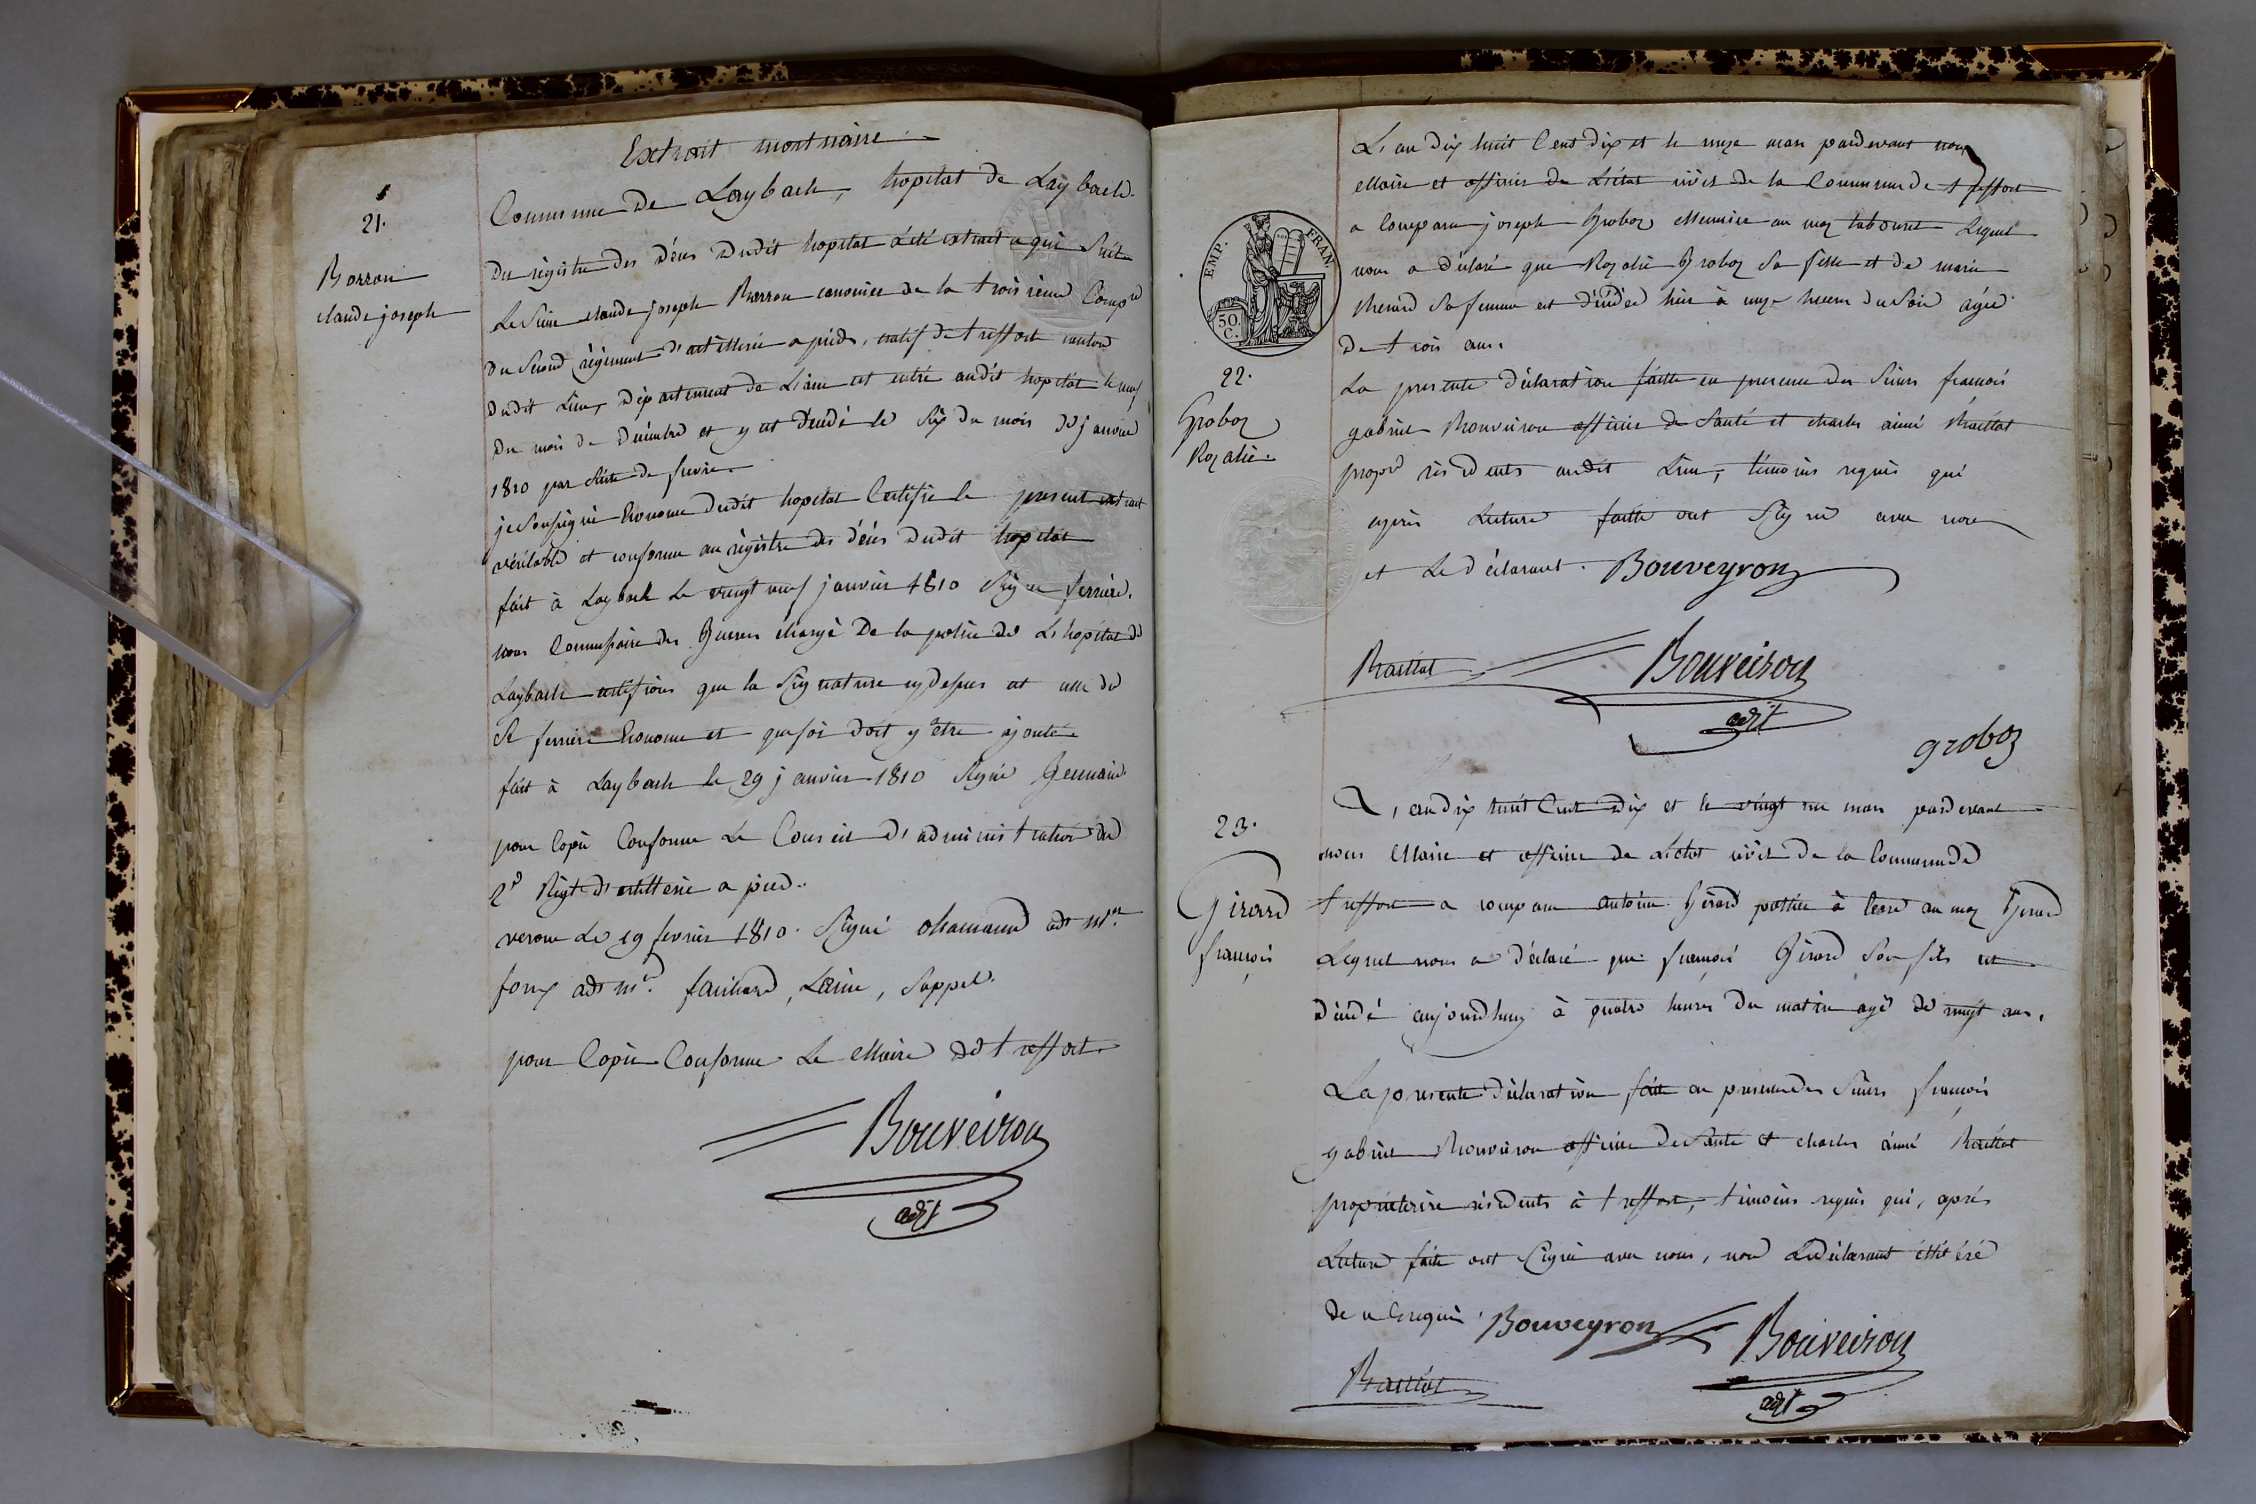 Extrait mortuaire
21.
Borron
claude joseph
Commune de Laybach, hopital de Laybach.
Du régistre des décés dudit hopital a été extrait ce qui suit
Le Sieur claude joseph Borron canonier de la troisieme Comp.e
du second régiment d'artillerie a pied, natif de treffort canton
dudit lieu, département de L'ain est entré audit hopital le neuf
du mois de Décembre et y est décédé le six du mois de janvier
1810 par suite de fievre.
je soussigné Econome dudit hopital Certifie le présent extrait
véritable et conforme au régistre des décés dudit hopital
fait à Laybach le vingt neuf janvier 1810 signé ferriere.
nous Commissaire des Guerres chargé De la police de L'hopital de
Laybach certifions que la signature cy dessus est celle du
Sr ferriere Econome et que foi doit y être ajoutée
fait à Laybach le 29 janvier 1810 signé Germain
pour Copie Conforme Le Conseil d'administration du
2e Régt d'artillerie a pied.
verone le 19 fevrier 1810. Signé adt m.
adt m. Laine, Suppel.
pour Copie Conforme Le Maire de treffort.
Bouveiron
adjt
EMP. FRAN.
50 C.
22.
Groboz
Rozalie.
L'an dix huit Cent dix et le onze mars pardevant nous
Maire et officier de L'état civil de la Commune de treffort
a comparu joseph Groboz Meunier au maz tabouret Lequel
nous a déclaré que Rozalie Groboz sa fille et de marie
sa femme est décédée hier à onze heures du soir agée
De trois ans.
La presente déclaration faitte en presence des Sieurs francois
gabriel Bouveiron officier de Santé et charles aimé Raillat
propre résidents audit Lieu, témoins requis qui
après Lecture faitte ont Signé avec nous
et Le déclarant. Bouveyron
Raillat Bouveiron
adjt
groboz
23.
Girard
françois
L'an dix huit Cent dix et le vingt un mars pardevant
nous Maire et officier de L'état civil de la Commune de
treffort a comparu antoine Girard pottier à terre au maz Girard
Lequel nous a déclaré que francois Girard Son fils est
décédé aujourdhuy à quatre heures du matin agé de vingt ans.
La presente déclaration faite en presence des Sieurs francois
gabriel Bouveiron officier de Santé et charles aimé Raillat
propriétaire résidents à treffort, témoins requis qui, après
Lecture faite ont Signé avec nous, non Ledéclarant illitéré
de ce Enquis. Bouveyron Bouveiron
Raillat
adjt